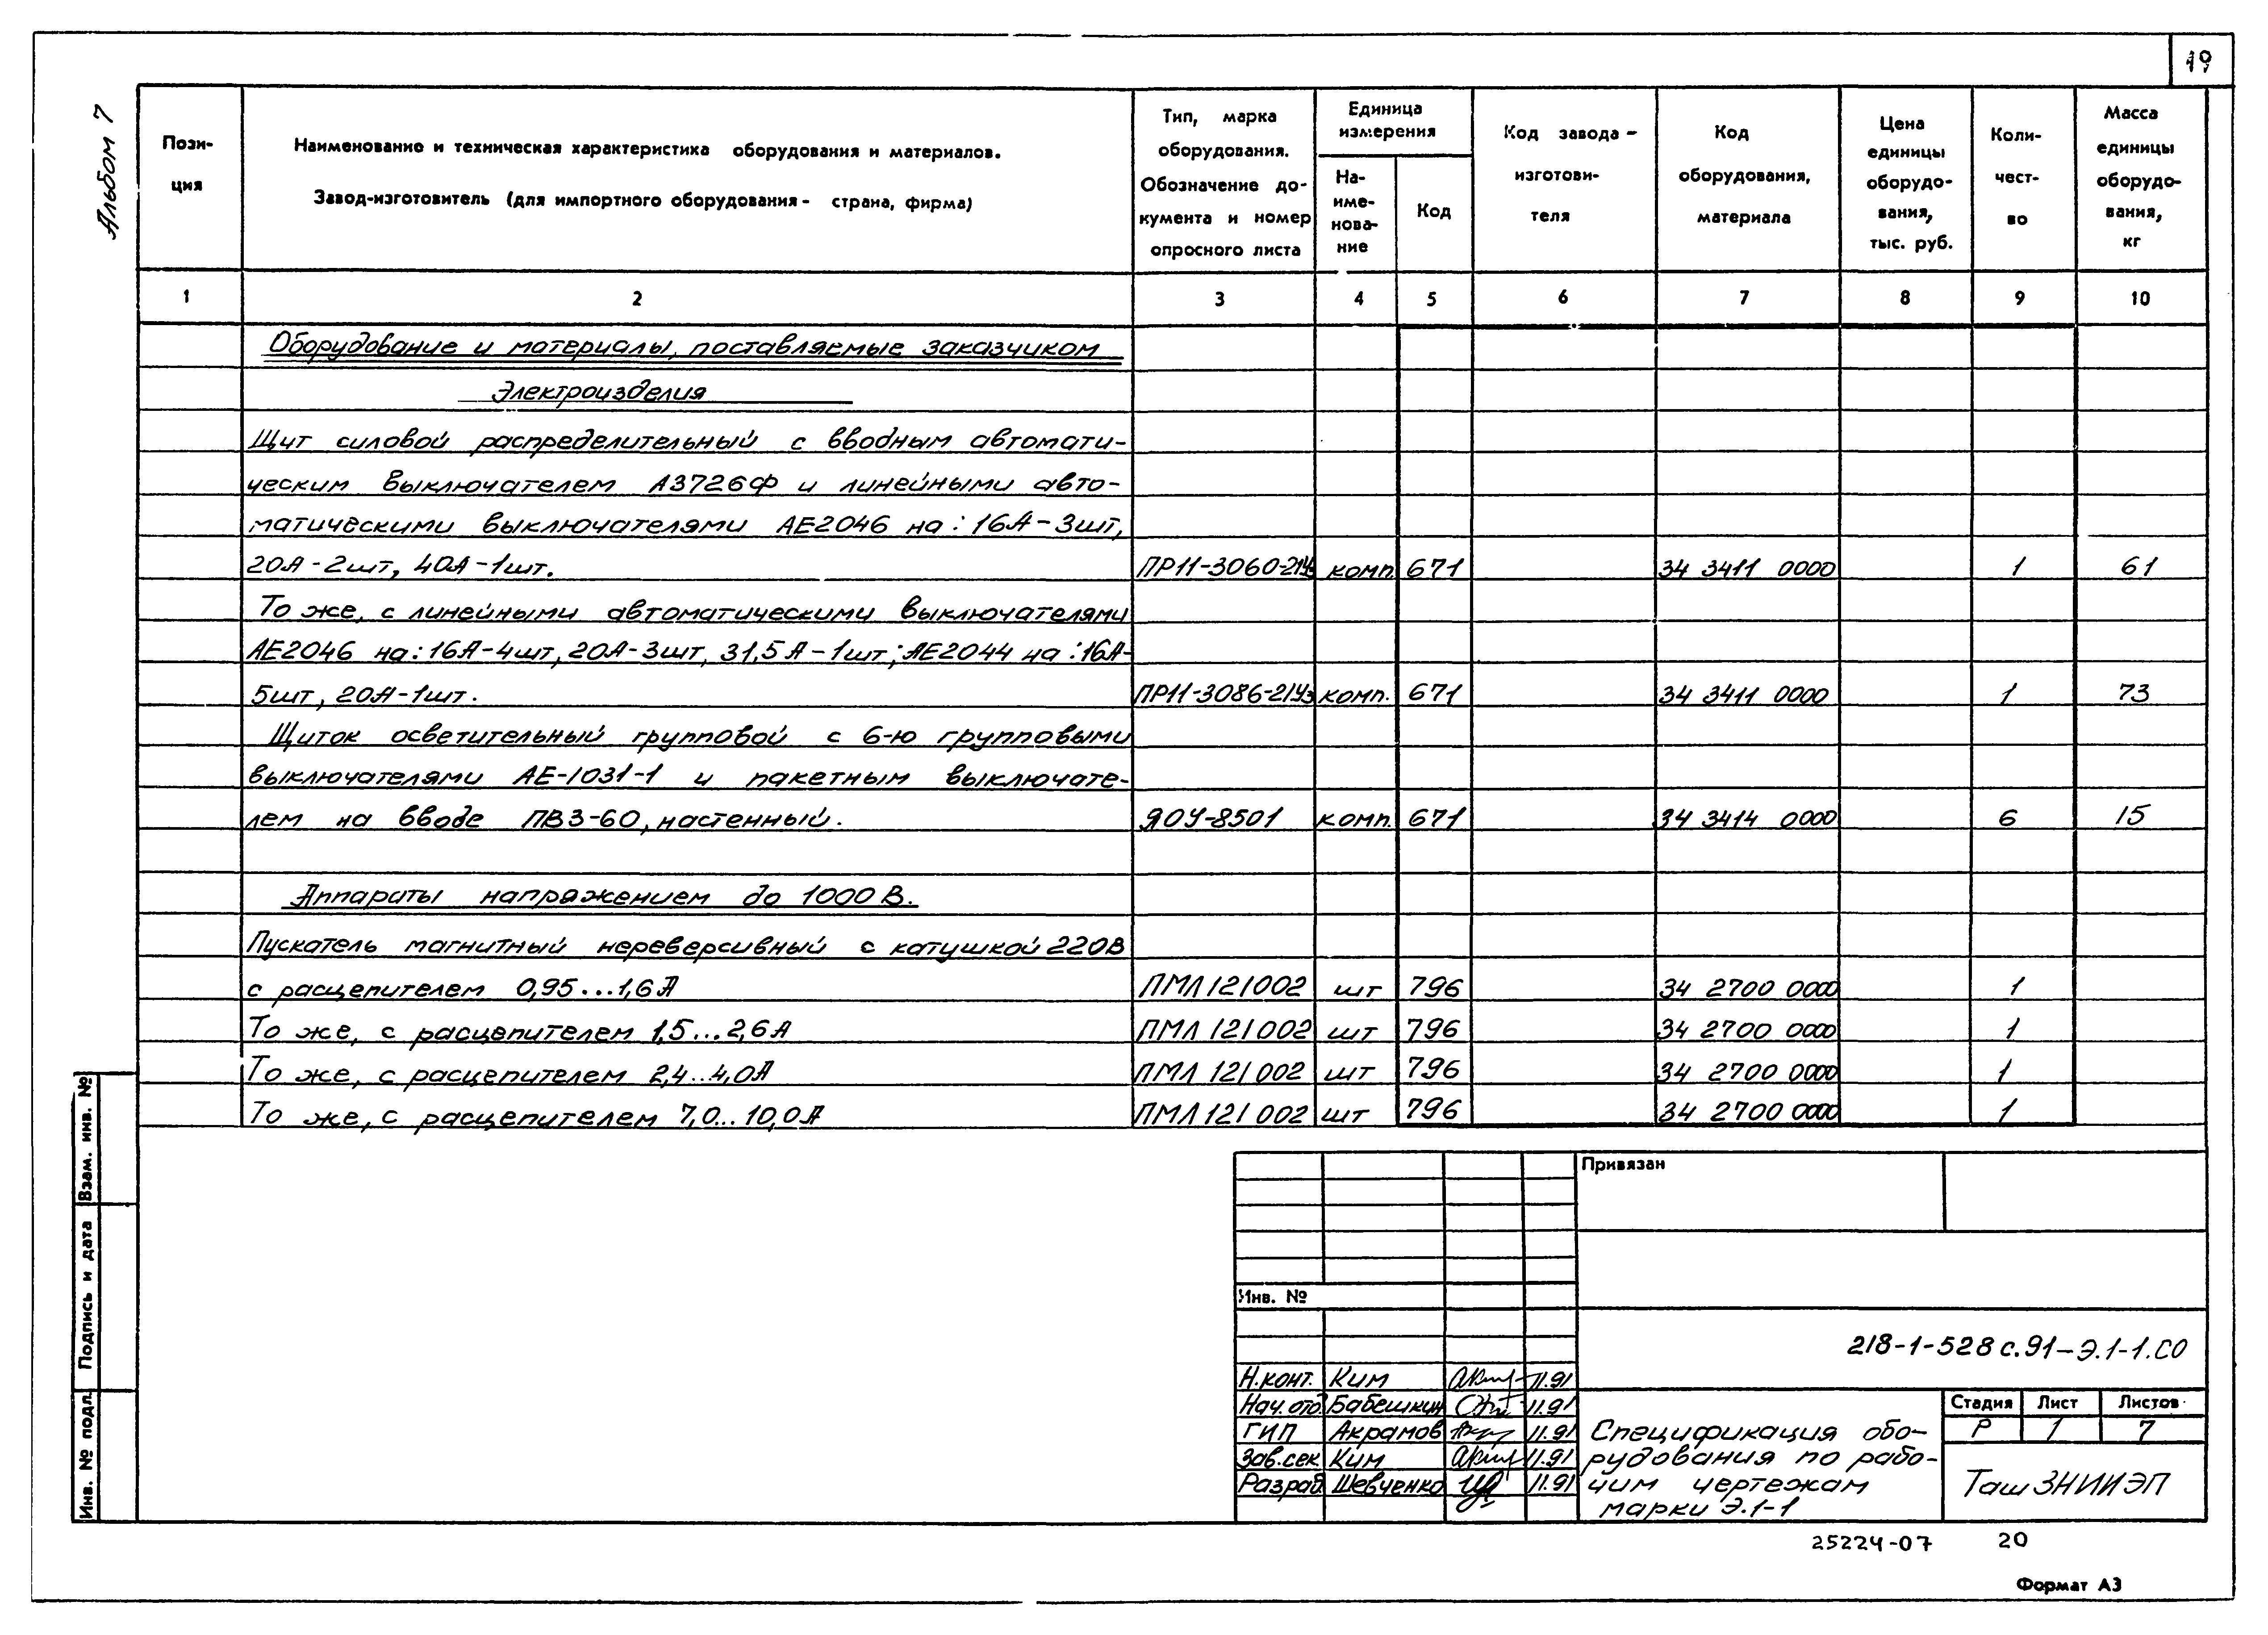 19
Альбом 7
Пози-
ция
Наименование и техническая характеристика оборудования и материалов.
Завод-изготовитель (для импортного оборудования - страна, фирма)
Тип, марка
оборудования.
Обозначение до-
кумента и номер
опросного листа
Единица
измерения
На-
име-
нова-
ние
Код
Код завода -
изготови-
теля
Код
оборудования,
материала
Цена
единицы
оборудо-
вания,
тыс. руб.
Коли-
чест-
во
Масса
единицы
оборудо-
вания,
кг
1 2 3 4 5 6 7 8 9 10
Оборудование и материалы, поставляемые заказчиком
Электроизделия
Щит силовой распределительный с вводным автомати-
ческим выключателем А3726Ф и линейными авто-
матическими выключателями АЕ2046 на: 16А-3шт,
20А-2шт, 40А-1шт. ПР11-3060-21У3 комп. 671 34 3411 0000 1 61
То же, с линейными автоматическими выключателями
АЕ2046 на: 16А-4шт, 20А-3шт, 31,5А-1шт; АЕ2044 на: 16А-
5шт, 20А-1шт. ПР11-3086-21У3 комп. 671 34 3411 0000 1 73
Щиток осветительный групповой с 6-ю групповыми
выключателями АЕ-1031-1 и пакетным выключате-
лем на вводе ПВ3-60, настенный. ЯОУ-8501 комп. 671 34 3414 0000 6 15
Аппараты напряжением до 1000 В.
Пускатель магнитный нереверсивный с катушкой 220В
с расцепителем 0,95...1,6А ПМЛ 121002 шт 796 34 2700 0000 1
То же, с расцепителем 1,5...2,6А ПМЛ 121002 шт 796 34 2700 0000 1
То же, с расцепителем 2,4...4,0А ПМЛ 121002 шт 796 34 2700 0000 1
То же, с расцепителем 7,0...10,0А ПМЛ 121002 шт 796 34 2700 0000 1
Взам. инв. №
Подпись и дата
Инв. № подл.
Привязан
Инв. №
218-1-528 с.91-Э.1-1.СО
Н.конт. Ким 11.91
Нач.отд. Бабешкин 11.91
ГИП Акрамов 11.91
Зав.сек Ким 11.91
Разраб Шевченко 11.91
Спецификация обо-
рудования по рабо-
чим чертежам
марки Э.1-1
Стадия Лист Листов
Р 1 7
ТашЗНИИЭП
25224-07 20
Формат А3